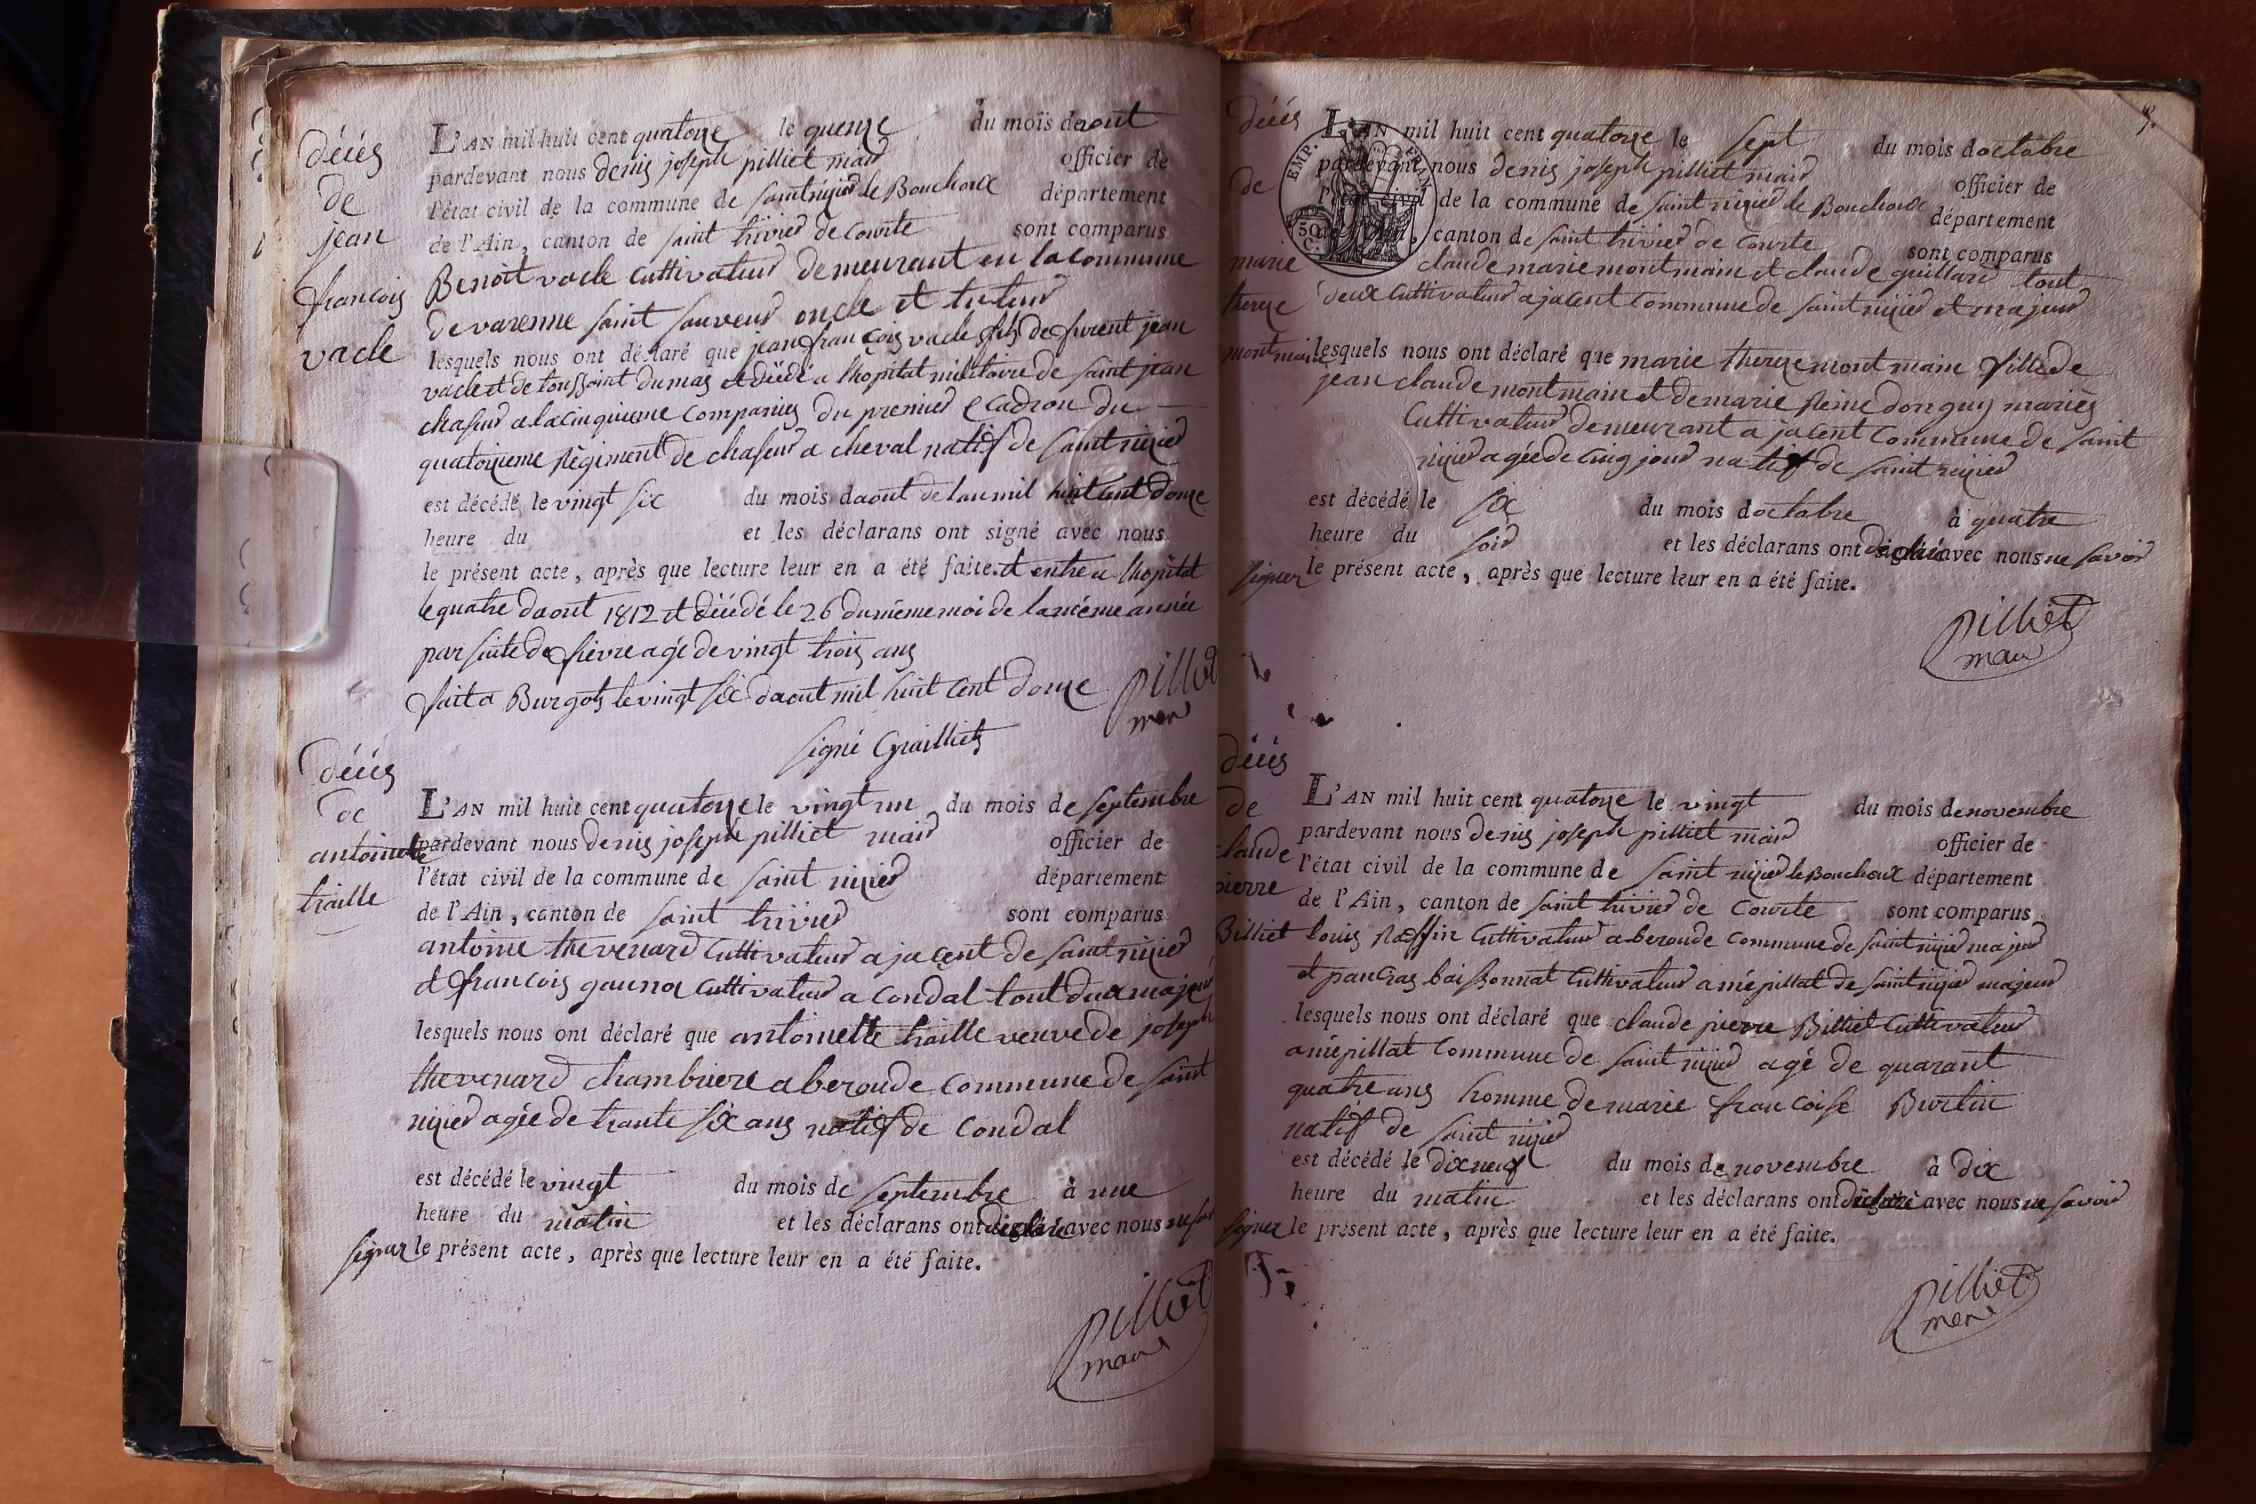 décès
de
jean
francois
vacle
L'AN mil huit cent quatorze le quenze du mois de aout
pardevant nous denis joseph pilliet maire officier de
l'état civil de la commune de saint nizier le Bouchoux département
de l'Ain, canton de saint trivier de Courte sont comparus
Benoit vacle Cultivateur demeurant en la commune
de varenne saint sauveur oncle et tuteur
lesquels nous ont déclaré que jean françois vacle fils de furent jean
vacle et de toussaint dumas et dédé a lhopital militaire de saint jean
chaseur a la cinquieme Companies du premier Ecadron du
quatorzieme Régiment de chaseur a cheval natif de saint nizier
est décédé le vingt six du mois daout de lan mil huit cent douze
heure du et les déclarans ont signé avec nous
le présent acte, après que lecture leur en a été faite. et entre a lhopital
le quatre daout 1812 et décédé le 26 du même moi de la méme année
par suite de fievre agé de vingt trois ans
fait a Burgots le vingt six daout mil huit cent douze
signé Grailliets
pilliet
maire
décès
de
antoinette
traille
L'AN mil huit cent quatorze le vingt un du mois de septembre
pardevant nous denis joseph pilliet maire officier de
l'état civil de la commune de saint nizier département
de l'Ain, canton de saint trivier sont comparus
antoine thevenard Cultivateur a jacent de saint nizier
et francois gauna Cultivateur a condal tout dux majeur
lesquels nous ont déclaré que antoinette traille veuve de joseph
thevenard chambriere a beroude commune de saint
nizier agée de trante six ans natif de Condal
est décédé le vingt du mois de septembre à une
heure du matin et les déclarans ont déclaré avec nous ne savoir
signer le présent acte, après que lecture leur en a été faite.
pilliet
maire
EMP. FRAN.
50 C.
décès
de
marie
thereze
montmain
L'AN mil huit cent quatorze le sept du mois doctobre
pardevant nous denis joseph pilliet maire officier de
l'état civil de la commune de saint nizier le Bouchoux département
de l'Ain, canton de saint trivier de Courte sont comparus
claude marie montmain et claude guillard tout
deux Cultivateur a jacent commune de saint nizier et majeur
lesquels nous ont déclaré que marie thereze montmain fille de
jean claude montmain et de marie Reine donguy mariés
Cultivateur demeurant a jacent Commune de saint
nizier agée de cinq jour natif de saint nizier
est décédé le six du mois doctobre à quatre
heure du soir et les déclarans ont déclaré avec nous ne savoir
signer le présent acte, après que lecture leur en a été faite.
pilliet
maire
décès
de
claude
pierre
Billiet
L'AN mil huit cent quatorze le vingt du mois de novembre
pardevant nous denis joseph pilliet maire officier de
l'état civil de la commune de saint nizier le Bouchoux département
de l'Ain, canton de saint trivier de Courte sont comparus
louis Cultivateur a beroude commune de saint nizier majeur
et pancras boissonnat Cultivateur a mépillat de saint nizier majeur
lesquels nous ont déclaré que claude pierre Billiet Cultivateur
a mépillat Commune de saint nizier agé de quarant
quatre ans homme de marie francoise Burlin
natif de saint nizier
est décédé le dix neuf du mois de novembre à dix
heure du matin et les déclarans ont déclaré avec nous ne savoir
signer le présent acte, après que lecture leur en a été faite.
pilliet
maire